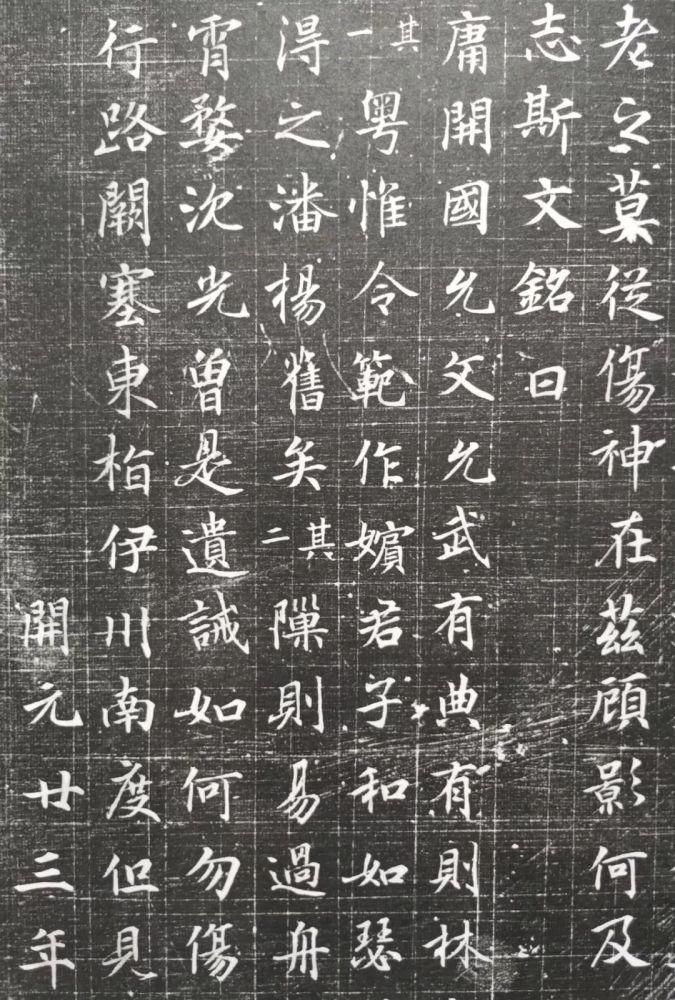 老之墓從傷神在茲顧影何及
志斯文銘曰
庸開國允文允武有典有則林
其一粤惟令範作嬪君子和如瑟
淂之潘楊舊矣其二隟則易過舟
宵婺沈光曾是遺誡如何勿傷
行路闕塞東栢伊川南度但見
開元廿三年